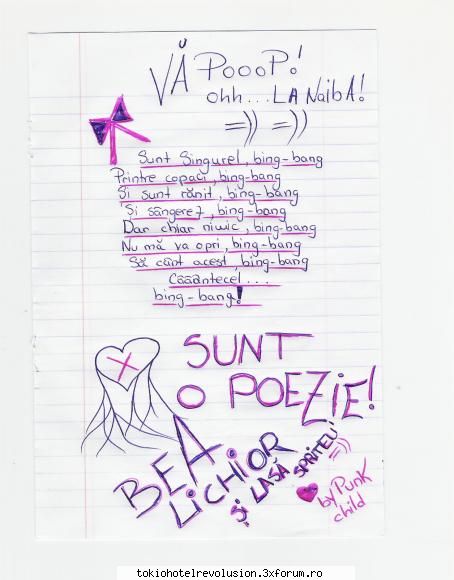 VĂ PoooP!
ohh...LA NaibA!
=)) =))
Sunt Singurel, bing-bang
Printre copaci, bing-bang
Și sunt rănit, bing-bang
Și sângerez, bing-bang
Dar chiar nimic, bing-bang
Nu mă va opri, bing-bang
Să cânt acest, bing-bang
Căăântecel...
bing-bang!
SUNT
O POEZIE!
BEA
LiCHiOR
Și LASĂ SPRITEU'
=))
by Punk
child
tokiohotelrevolusion.3xforum.ro